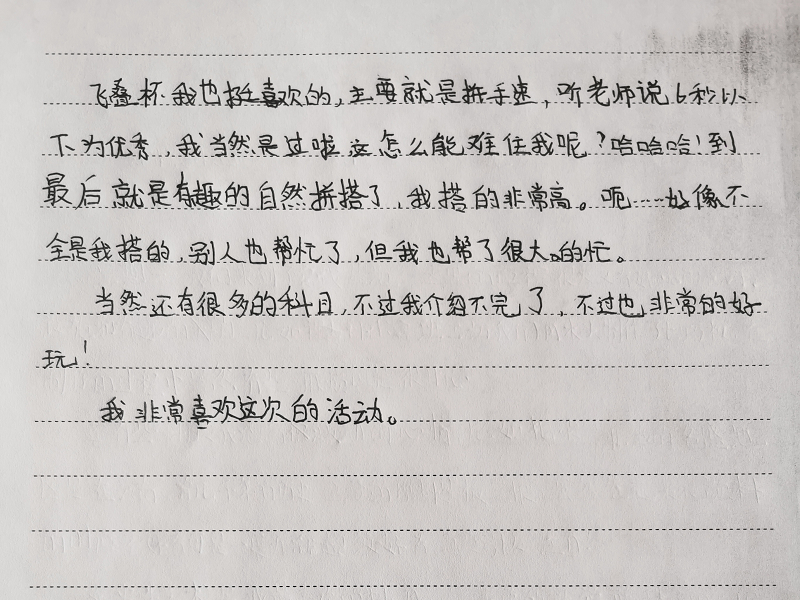 飞叠杯我也挺喜欢的,主要就是拼手速,听老师说6秒以
下为优秀,我当然是过啦这怎么能难住我呢?哈哈哈!到
最后就是有趣的自然拼搭了,我搭的非常高。呃……好像不
全是我搭的,别人也帮忙了,但我也帮了很大的忙。
当然还有很多的科目,不过我介绍不完了,不过也非常的好
玩!
我非常喜欢这次的活动。